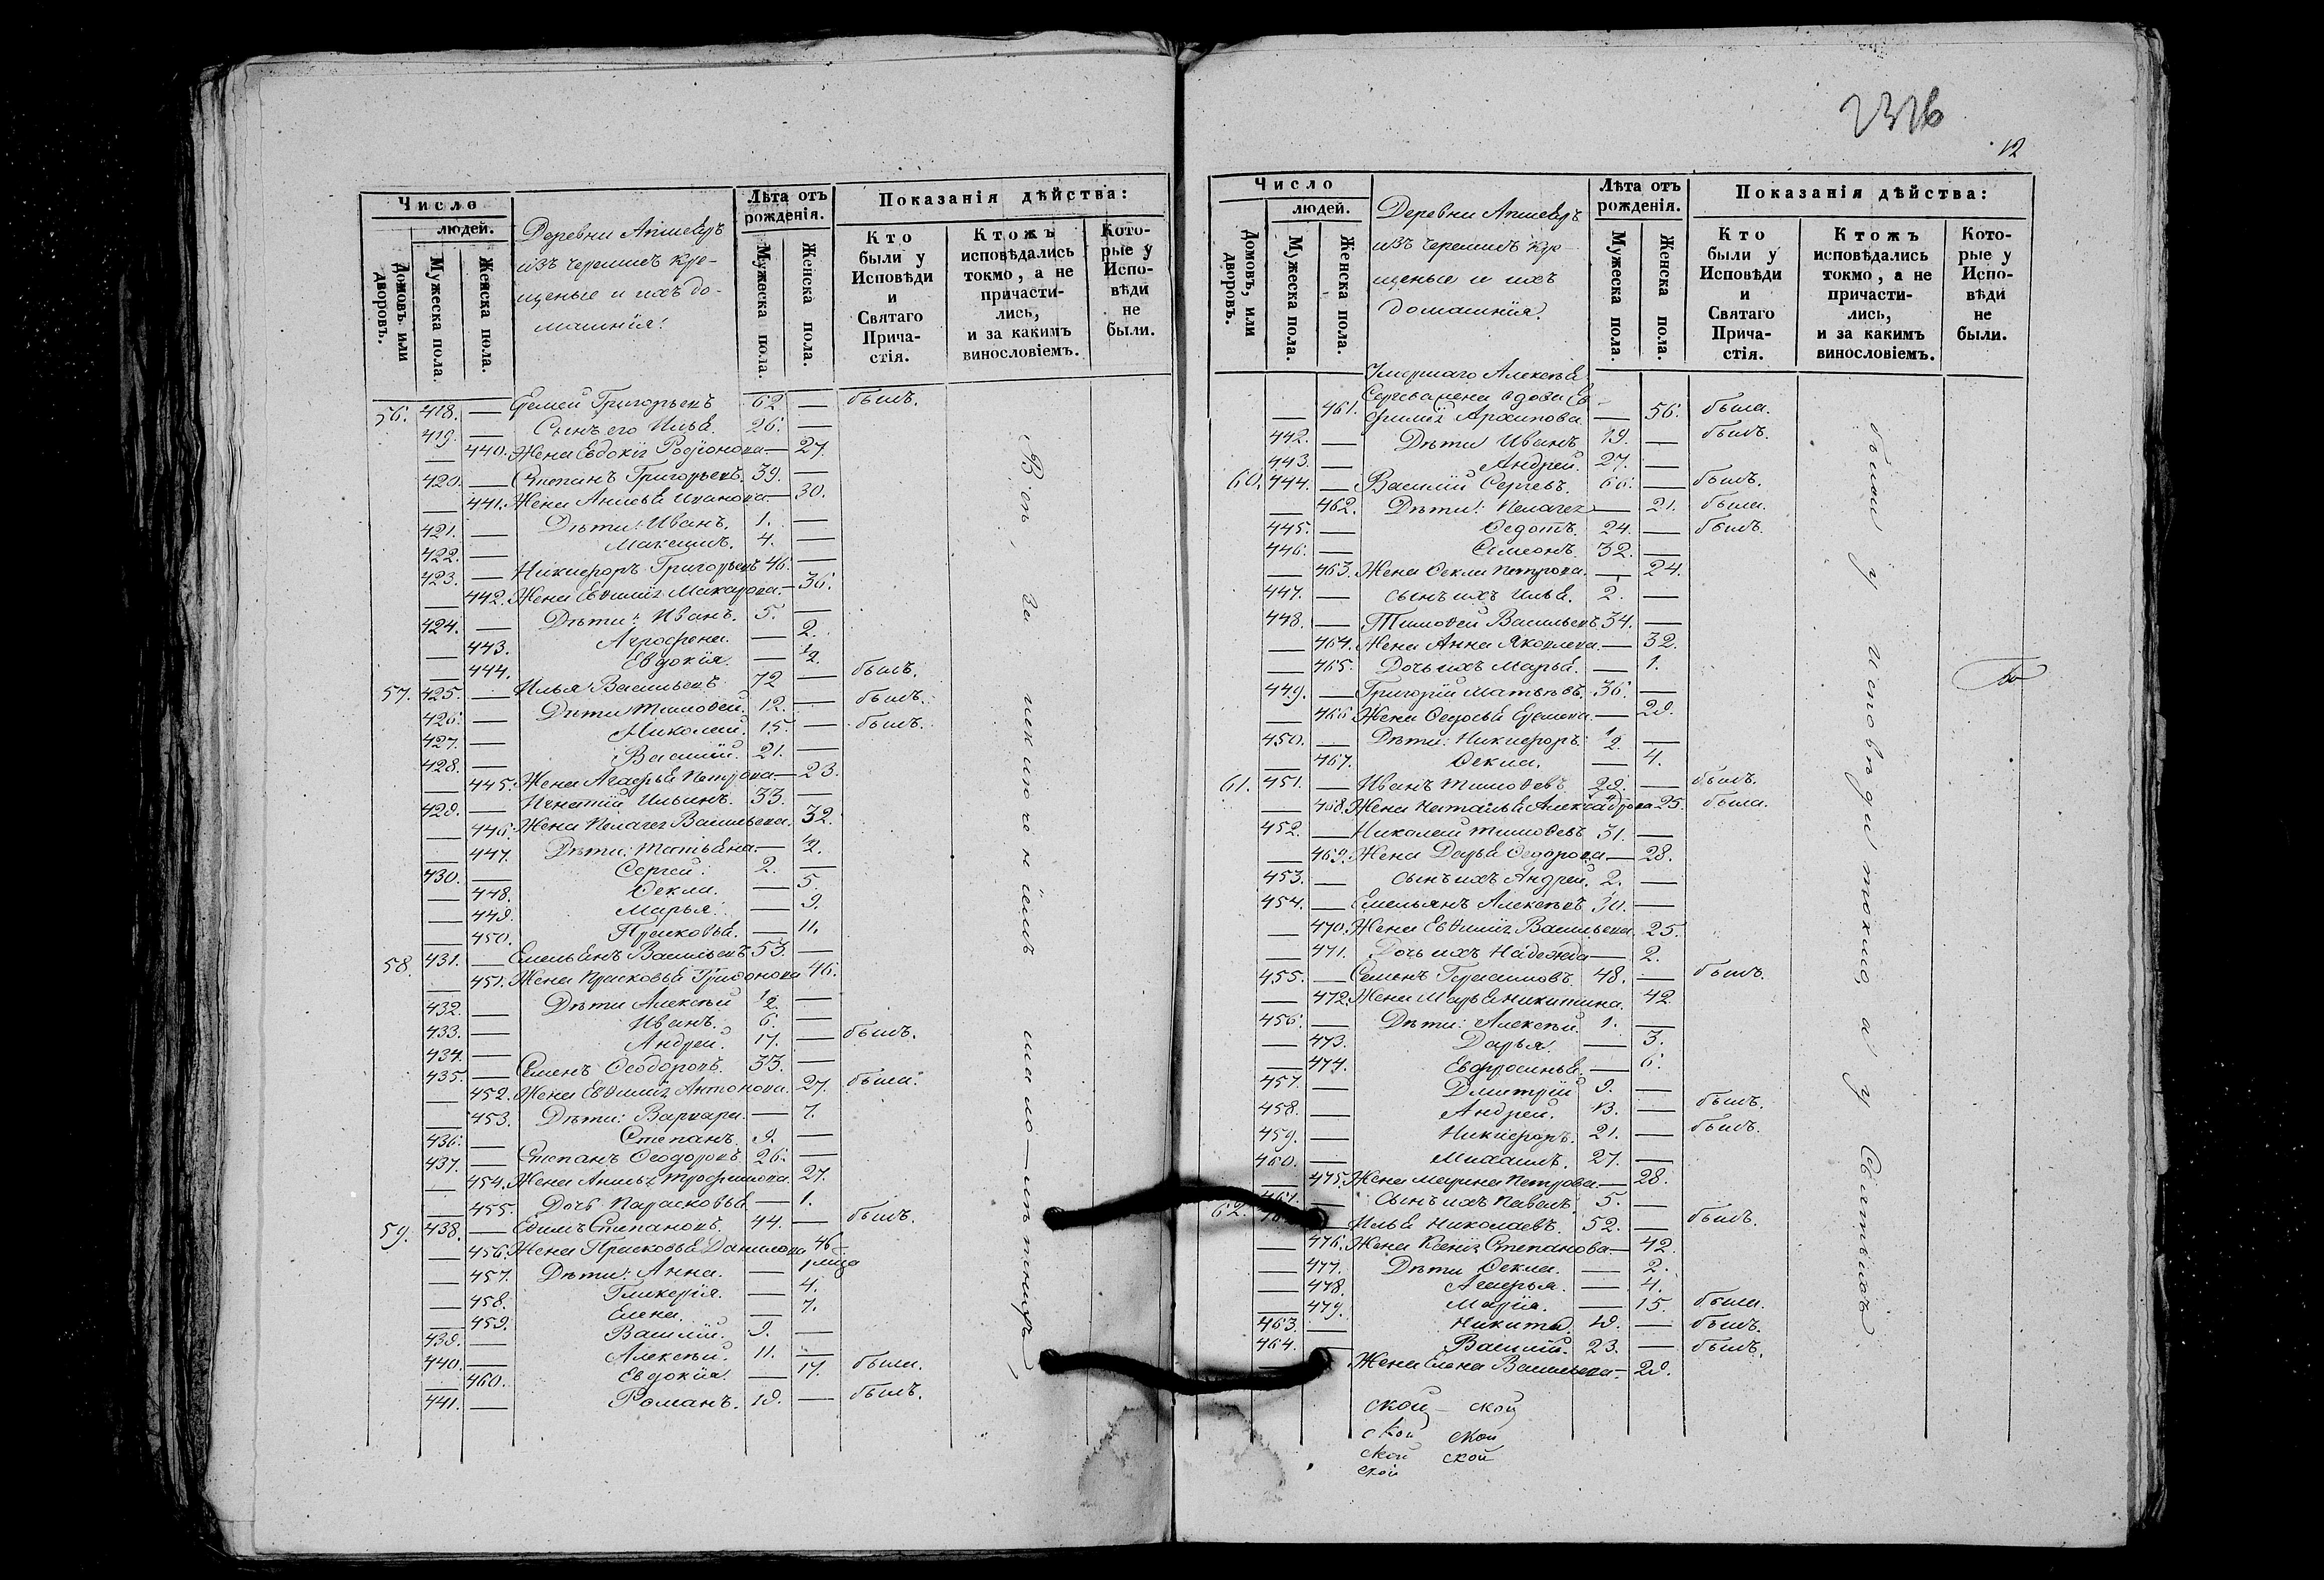 Число
людей.
Домовъ или дворовъ.
Мужеска пола.
Женска пола.
Деревни Апшевъ
изъ черемисъ кре-
щеные и ихъ до-
машнія:
Лѣта отъ рожденія.
Мужеска пола.
Женска пола.
Показанія дѣйства:
Кто были у Исповѣди и Святаго Прича-стія.
Ктожъ исповѣдались токмо, а не причасти-лись, и за какимъ винословіемъ.
Кото-рые у Испо-вѣди не были.
56. 418. — Еремей Григорьевъ 62 — былъ.
419. — Сынъ его Илья. 26. —
— 440. Жена Евдокія Родіонова — 27.
420. — Степанъ Григорьевъ. 39. —
— 441. Жена Анисья Иванова — 30.
421. — Дѣти: Иванъ. 1. —
422. — Максимъ. 4. —
423. — Никифоръ Григорьевъ 46. —
— 442. Жена Евѳимія Макарова. — 36.
424. — Дѣти: Иванъ. 5. —
— 443. Агрофена. — 2.
— 444. Евдокія. — 1/2.
57. 425. — Илья Васильевъ 72 — былъ.
426. — Дѣти Тимоѳей. 12. — былъ.
427. — Николай. 15. — былъ.
428. — Василій. 21. —
— 445. Жена Агафья Петрова — 23.
429. — Игнатій Ильинъ. 33. —
— 446. Жена Пелагея Васильева. 32.
— 447. Дѣти: Татьяна — 1/2.
430. — Сергей. 2. —
— 448. Ѳекла. — 5.
— 449. Марья. — 9.
— 450. Прасковья. — 11.
58. 431. — Емельянъ Васильевъ 53. —
— 451. Жена Прасковья Трифонова 46.
432. — Дѣти Алексѣй 1/2. —
433. — Иванъ. 6. —
434. — Андрей. 17. — былъ.
435. — Семенъ Ѳеодоровъ. 33. —
— 452. Жена Евѳимія Антонова. 27. была.
— 453. Дѣти: Варвара. — 7.
436. — Степанъ. 9. —
437. — Степанъ Ѳеодоровъ 26. —
— 454. Жена Анисья Трофимова. 27.
— 455. Дочь Парасковья — 1.
59. 438. — Ефимъ Степановъ. 44. — былъ.
— 456. Жена Прасковья Данилова 46
— 457. Дѣти: Анна. —
— 458. Гликерія. — 4.
— 459. Елена. — 7.
439. — Василій. 9. —
440. — Алексѣй. 11. —
— 460. Евдокія. — 17. была.
441. — Романъ. 19. — былъ.
Всѣ, за исключеніемъ мало-лѣтнихъ
12
Число
людей.
Домовъ, или дворовъ.
Мужеска пола.
Женска пола.
Деревни Апшевъ
изъ черемисъ кре-
щеные и ихъ
домашнія.
Лѣта отъ рожденія.
Мужеска пола.
Женска пола.
Показанія дѣйства:
Кто были у Исповѣди и Святаго Прича-стія.
Ктожъ исповѣдались токмо, а не причасти-лись, и за какимъ винословіемъ.
Кото-рые у Испо-вѣди не были.
Умершаго Алексѣя
Сергѣева жена вдова Ев-
— 461. фимія Архипова — 56. была.
442. — Дѣти Иванъ 19. — былъ.
443. — Андрей. 27. —
60. 444. — Василій Сергевъ. 66. — былъ.
— 462. Дѣти: Пелагея — 21. была.
445. — Ѳедотъ. 24. — былъ.
446. — Симеонъ. 32. —
— 463. Жена Ѳекла Петрова. — 24.
447. — сынъ ихъ Илья. 2. —
448. — Тимоѳей Васильевъ 34. —
— 464. Жена Анна Яковлева. — 32.
— 465. Дочь ихъ Марья. — 1.
449. — Григорій Матвѣевъ. 36. —
— 466 Жена Ѳедосья Еремева. — 29.
450. — Дѣти: Никифоръ. 1/2. —
— 467. Ѳекла. — 4.
61. 451. — Иванъ Тимоѳевъ. 29. — былъ.
— 468. Жена Наталья Александрова 25. была.
452. — Николай Тимоѳевъ 31. —
— 469. Жена Дарья Ѳедорова — 28.
453. — сынъ ихъ Андрей. 2. —
454. — Емельянъ Алексѣевъ 30. —
— 470. Жена Евѳимія Васильева. 25.
— 471. Дочь ихъ Надежда — 2.
455. — Семенъ Герасимовъ. 48. — былъ.
— 472. Жена Марья Никитина. 42
456. — Дѣти: Алексѣй. 1. —
— 473. Дарья. — 3.
— 474. Евфросинья. — 6.
457. — Дмитрій 9. —
458. — Андрей. 13. — былъ.
459. — Никифоръ. 21. — былъ.
460. — Михаилъ. 27. —
— 475. Жена Марина Петрова — 28.
461. — сынъ ихъ Павелъ. 5. —
62. — Илья Николаевъ. 52. — былъ.
— 476. Жена Ксенія Степанова — 42.
— 477. Дѣти Ѳекла. — 2.
— 478. Агафья. — 4.
— 479. Марія. — 15. была.
463. — Никита. 19. — былъ.
464. — Василій. 23. — былъ.
— Жена Елена Васильева — 29.
были у исповѣди токмо, а у Святыхъ
ской — ской
ской ской
ской ской
ской